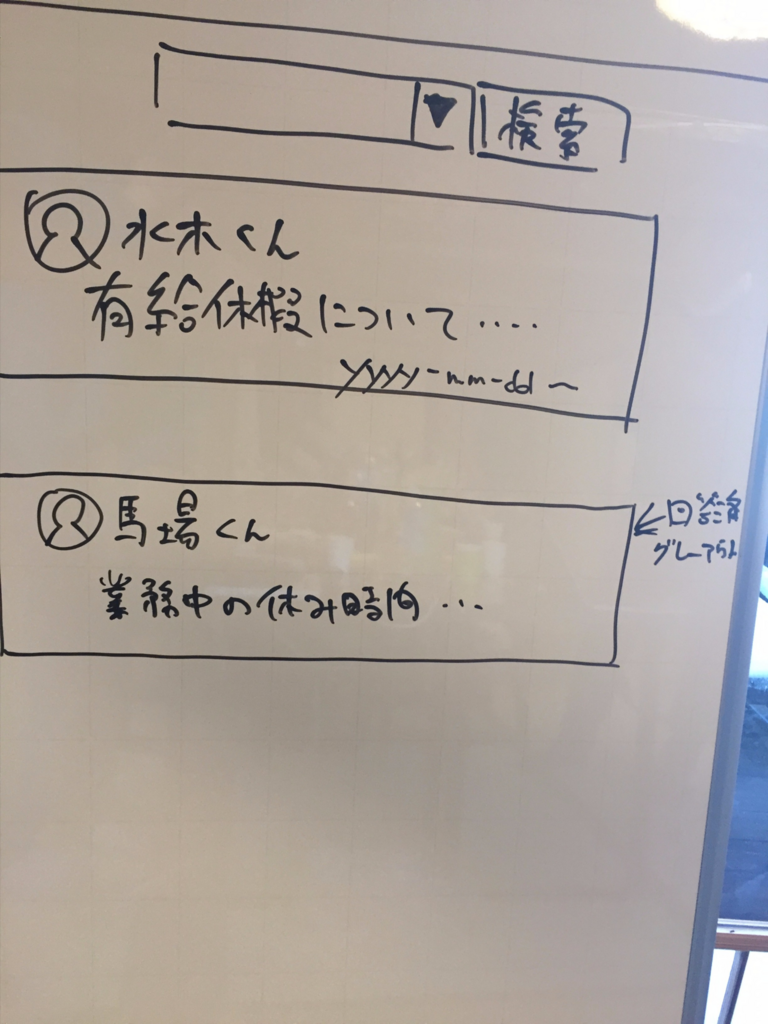 ▼ 検索
水木くん
有給休暇について....
yyyy-mm-dd ~
馬場くん
業務中の休み時間...
←回答済
グレーアウト